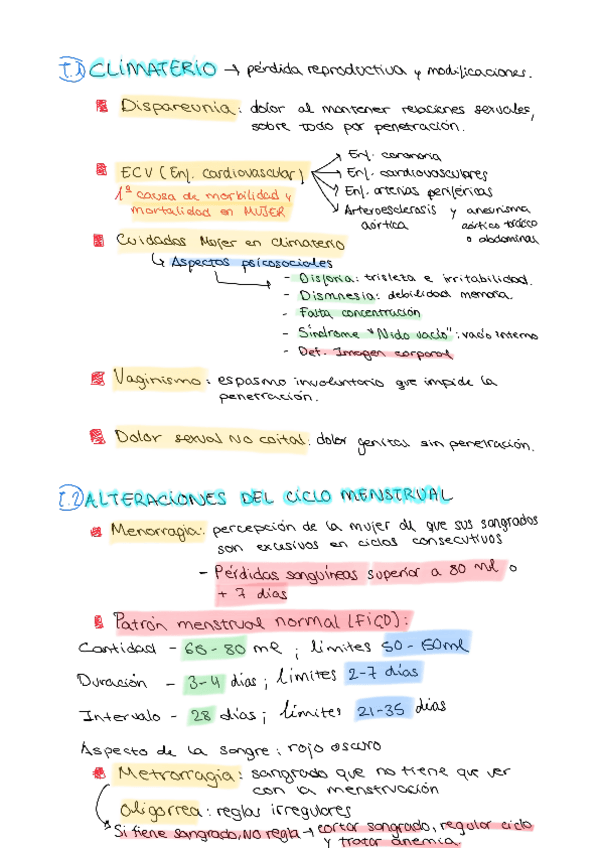 T.1 CLIMATERIO → pérdida reproductiva y modificaciones.
Dispareunia: dolor al mantener relaciones sexuales,
sobre todo por penetración.
ECV (Enf. cardiovascular)
1ª causa de morbilidad y
mortalidad en MUJER
→ Enf. coronaria
→ Enf. cardiovasculares
→ Enf. arterias periféricas
→ Arteroesclerosis y aneurisma
aórtica aórtico torácico
o abdominal
Cuidados Mujer en climaterio
↳ Aspectos psicosociales
- Disforia: tristeza e irritabilidad.
- Dismnesia: debilidad memoria.
- Falta concentración
- Síndrome "Nido vacío": vacío interno
- Def. Imagen corporal
Vaginismo: espasmo involuntario que impide la
penetración.
Dolor sexual NO coital: dolor genital sin penetración.
T.2 ALTERACIONES DEL CICLO MENSTRUAL
Menorragia: percepción de la mujer de que sus sangrados
son excesivos en ciclos consecutivos
- Pérdidas sanguíneas superior a 80 ml o
+ 7 días
Patrón menstrual normal (FIGO):
Cantidad - 60-80 ml ; límites 50-150ml
Duración - 3-4 días ; límites 2-7 días
Intervalo - 28 días ; límites 21-35 días
Aspecto de la sangre: rojo oscuro
Metrorragia: sangrado que no tiene que ver
con la menstruación
Oligorrea: reglas irregulares
* Si tiene sangrado, NO regla → cortar sangrado, regular ciclo
y tratar anemia.